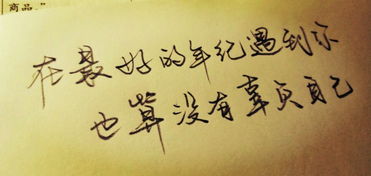 商品。”
在最好的年纪遇到你
也算没有辜负自己